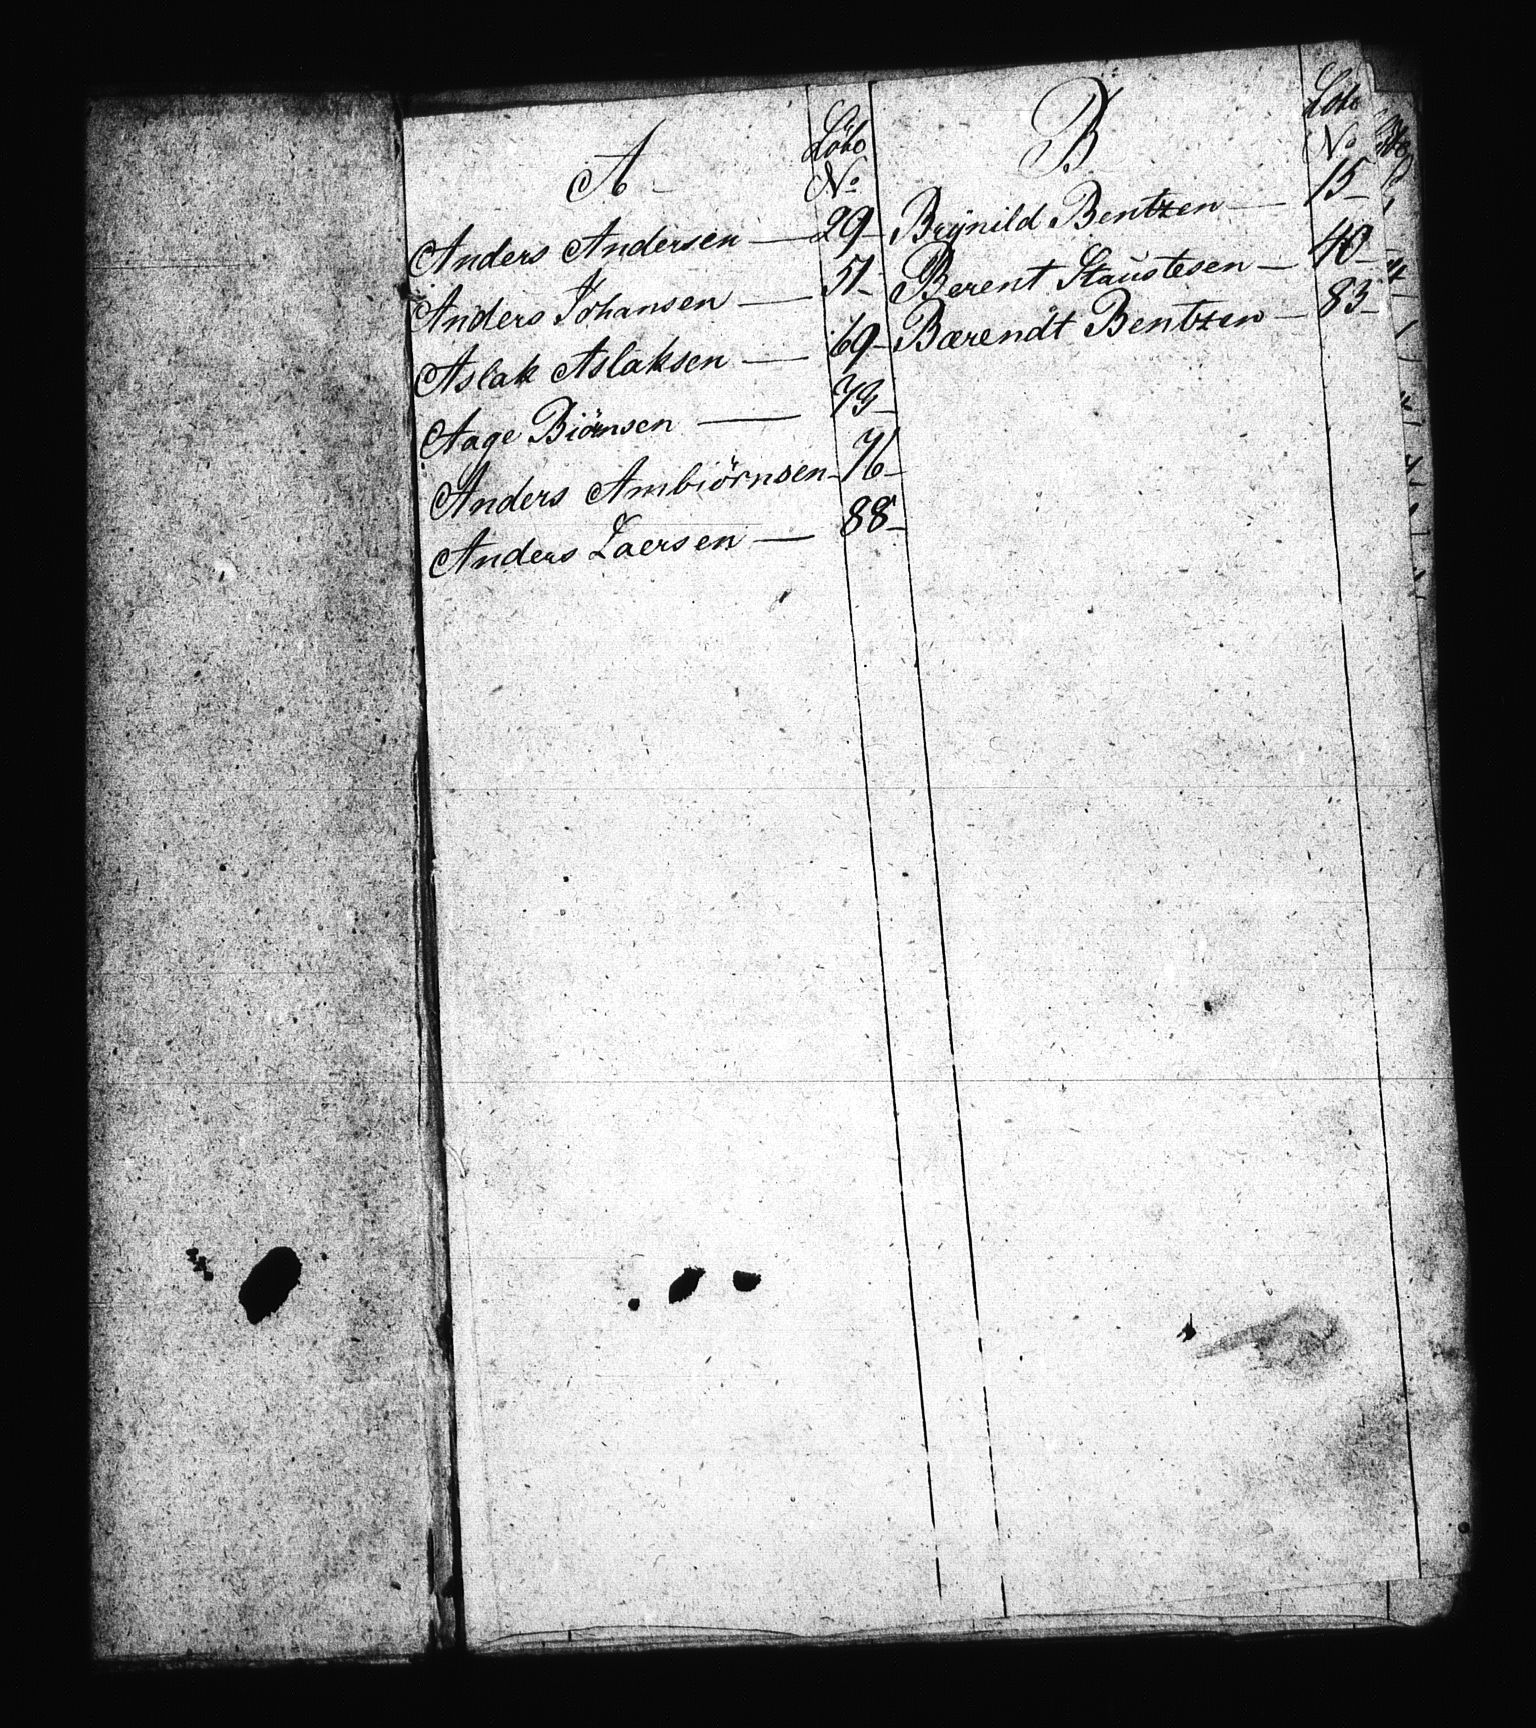 A
Löbe
No
Anders Andersen — 29
Anders Johansen — 51
Aslak Aslaksen — 69
Aage Biörnsen — 73
Anders Ambiörnsen 76
Anders Laersen — 88
B
Löbe
No
Brÿnild Bentzen — 15
Berent Staustesen — 40
Bærendt Bentzen — 83